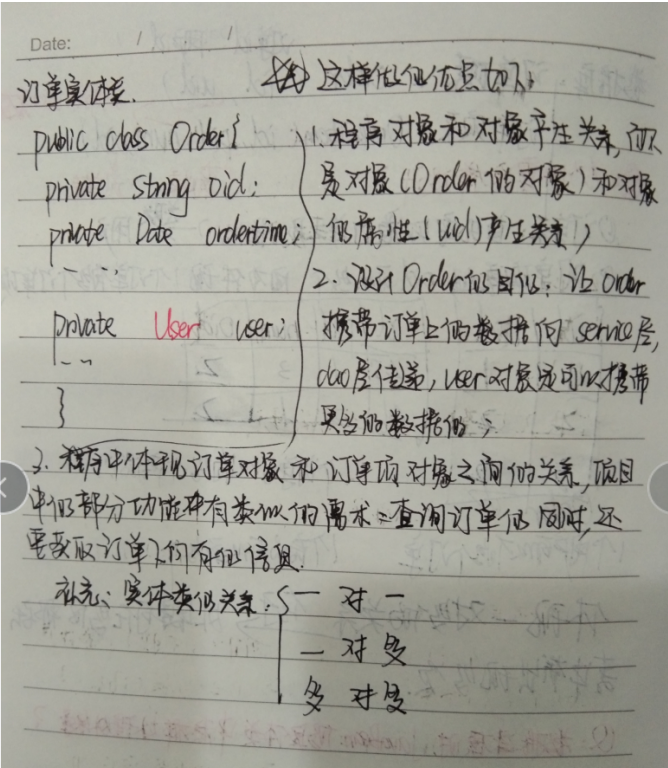 Date: / /
订单实体类.
public class Order{
private String oid;
private Date ordertime;
private User user;
}
这样做的优点如下:
1. 程序对象和对象产生关系, 而不
是对象(Order的对象)和对象
的属性(uid)产生关系;
2. 设计Order的目的: 让order
携带订单上的数据向service层,
dao层传递, user对象是可以携带
更多的数据的;
3. 程序中体现订单对象和订单项对象之间的关系, 项目
中的部分功能中有类似的需求: 查询订单的同时, 还
要获取订单下所有的信息.
补充: 实体类的关系:
一 对 一
一 对 多
多 对 多